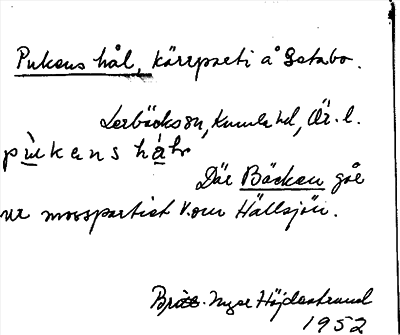 Pukens hål, kärrparti å Getabo.
Lerbäcks sn, Kumla hd, Är. l.
pu̇kens hål
Där Bäcken går
ur mosspartiet V. om Hällsjön.
Brita Höjdestrand
1952